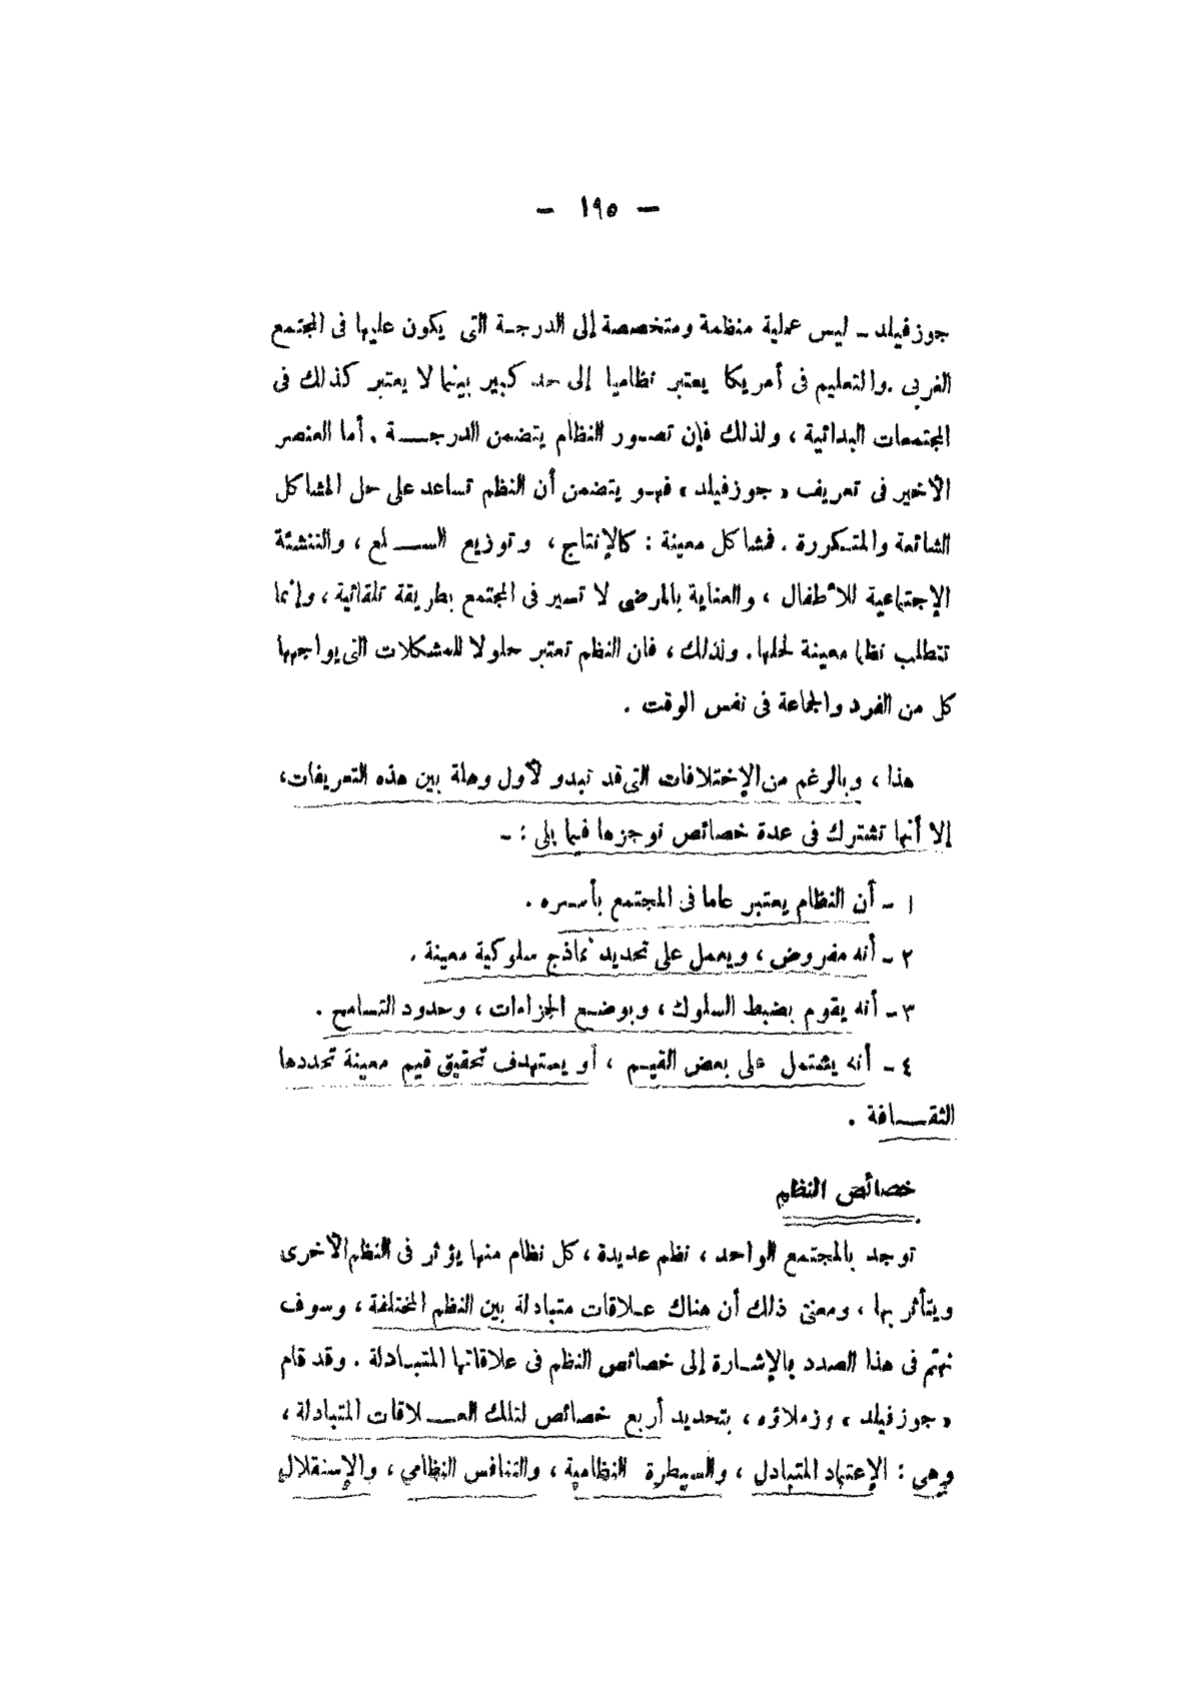 — ١٩٥ —
جوزفيلد ــ ليس عملية منظمة ومتخصصة إلى الدرجة التى يكون عليها فى المجتمع
الغربى . والتعليم فى أمريكا يعتبر نظاميا إلى حد كبير بينما لا يعتبر كذلك فى
المجتمعات البدائية ، ولذلك فإن تصور النظام يتضمن الدرجـــة . أما العنصر
الأخير فى تعريف « جوزفيلد » فهو يتضمن أن النظم تساعد على حل المشاكل
الشائعة والمتكررة . فمشاكل معينة : كالإنتاج ، وتوزيع الســـلع ، والتنشئة
الإجتماعية للأطفال ، والعناية بالمرضى لا تسير فى المجتمع بطريقة تلقائية ، وإنما
تتطلب نظما معينة لحلها . ولذلك ، فان النظم تعتبر حلولا للمشكلات التى يواجهها
كل من الفرد والجماعة فى نفس الوقت .
هذا ، وبالرغم من الإختلافات التى قد تبدو لأول وهلة بين هذه التعريفات ،
إلا أنها تشترك فى عدة خصائص نوجزها فيما يلى : ــ
١ ــ أن النظام يعتبر عاما فى المجتمع بأسره .
٢ ــ أنه مفروض ، ويعمل على تحديد نماذج سلوكية معينة .
٣ ــ أنه يقوم بضبط السلوك ، وبوضع الجزاءات ، وحدود التسامح .
٤ ــ أنه يشتمل على بعض القيم ، أو يستهدف تحقيق قيم معينة تحددها
الثقـــافة .
خصائص النظم
توجد بالمجتمع الواحد ، نظم عديدة ، كل نظام منها يؤثر فى النظم الأخرى
ويتأثر بها ، ومعنى ذلك أن هناك علاقات متبادلة بين النظم المختلفة ، وسوف
نهتم فى هذا الصدد بالإشارة إلى خصائص النظم فى علاقاتها المتبادلة . وقد قام
« جوزفيلد » وزملاؤه ، بتحديد أربع خصائص لتلك العـــلاقات المتبادلة ،
وهى : الإعتماد المتبادل ، والسيطرة النظامية ، والتنافس النظامي ، والإستقلال